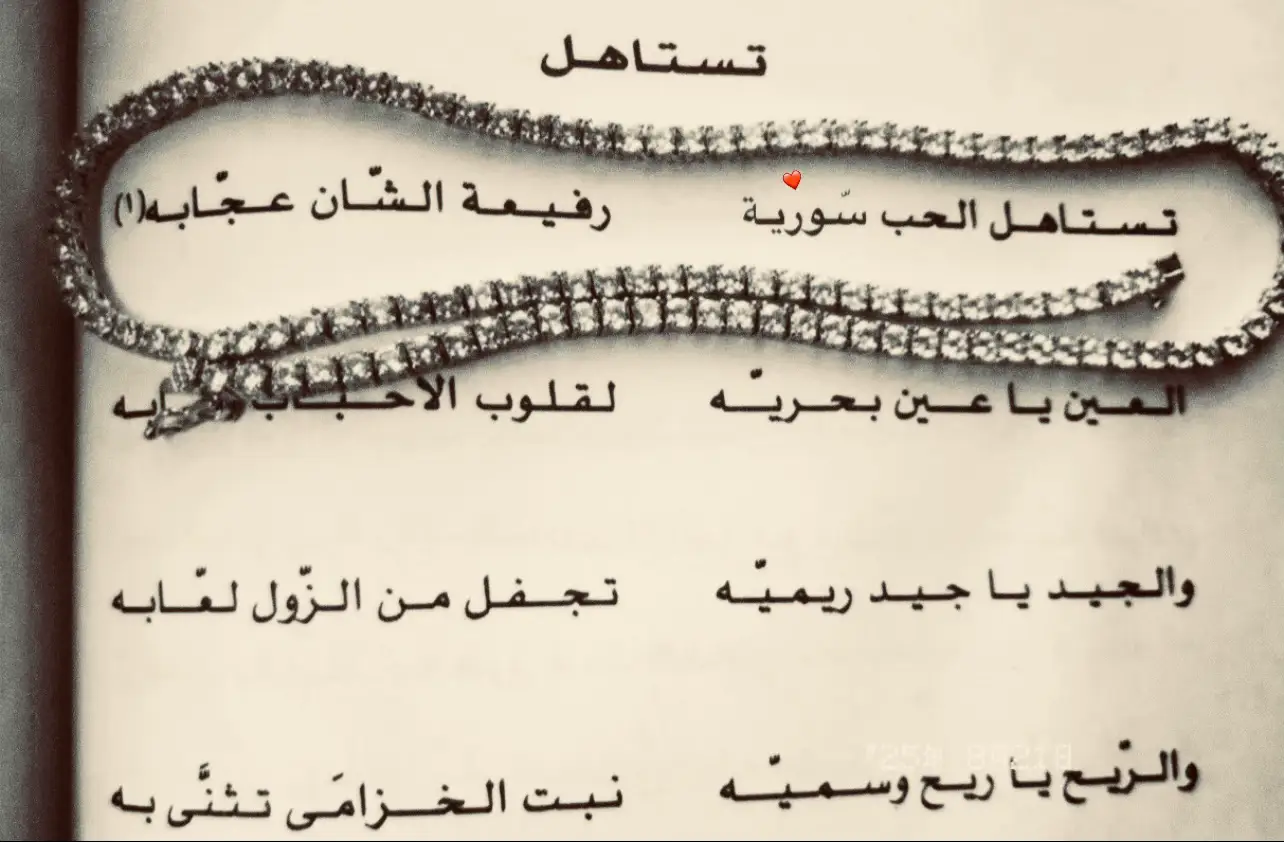 تستاهل
تستاهل الحب سّورية رفيعة الشّان عجّابه(١)
العين يا عين بحريّه لقلوب الاحباب
والجيد يا جيد ريميّه تجفل من الزّول لعّابه
والرّيح يا ريح وسميّه نبت الخزامَى تثنَّى به